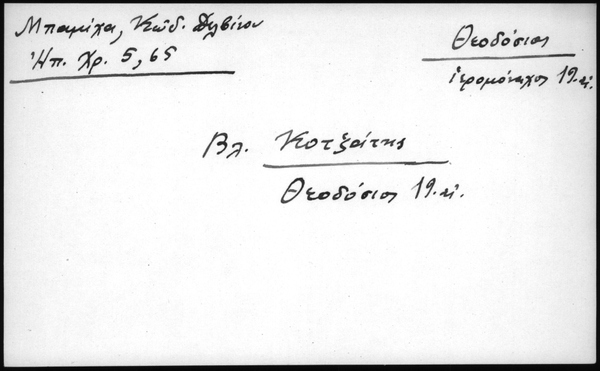 Μπαμίχα, Κώδ. Δελβίνου
Ἠπ. Χρ. 5, 65
Θεοδόσιος
ἱερομόναχος 19. αἰ.
Βλ. Κοτζαΐτης
Θεοδόσιος 19. αἰ.